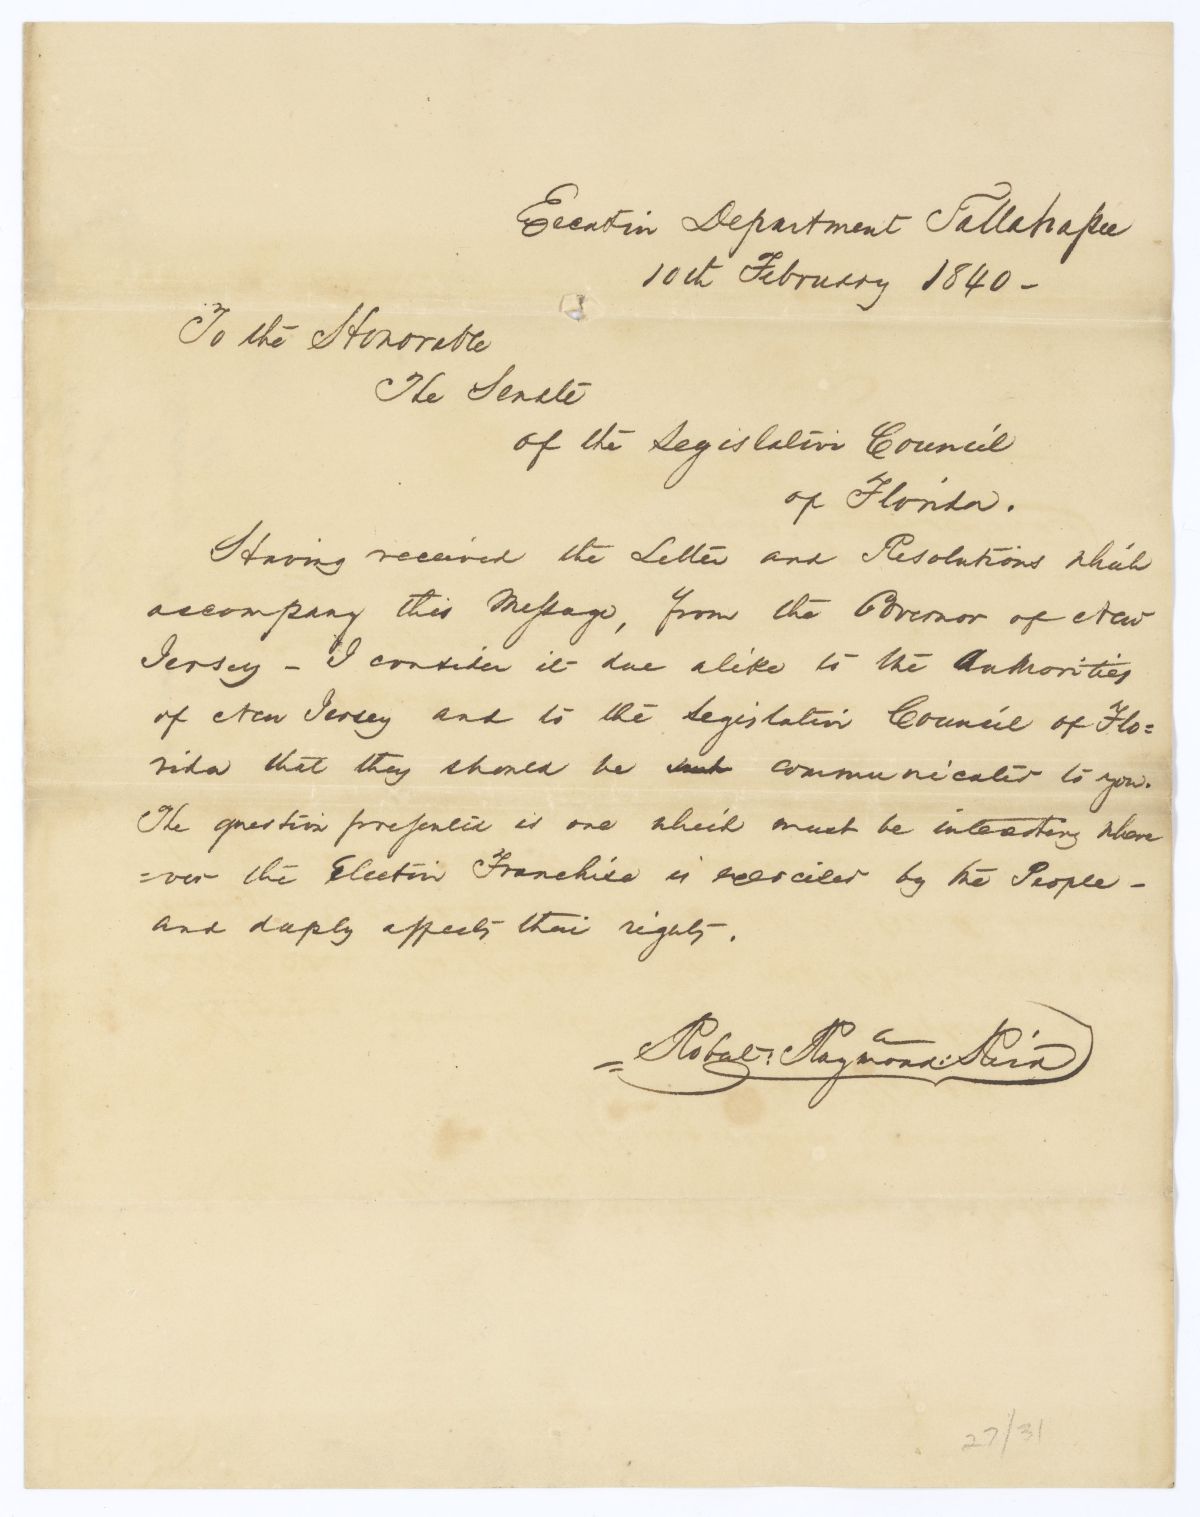 Executive Department Tallahassee
10th February 1840 -
To the Honorable
The Senate
of the Legislative Council
of Florida.
Having received the Letter and Resolutions which
accompany this Message, from the Governor of New
Jersey - I consider it due alike to the Authorities
of New Jersey and to the Legislative Council of Flo=
rida that they should be communicated to you.
The question presented is one which must be interesting where
=ver the Elective Franchise is exercised by the People -
and deeply affects their rights.
= Robert: Raymond: Reid
27/31